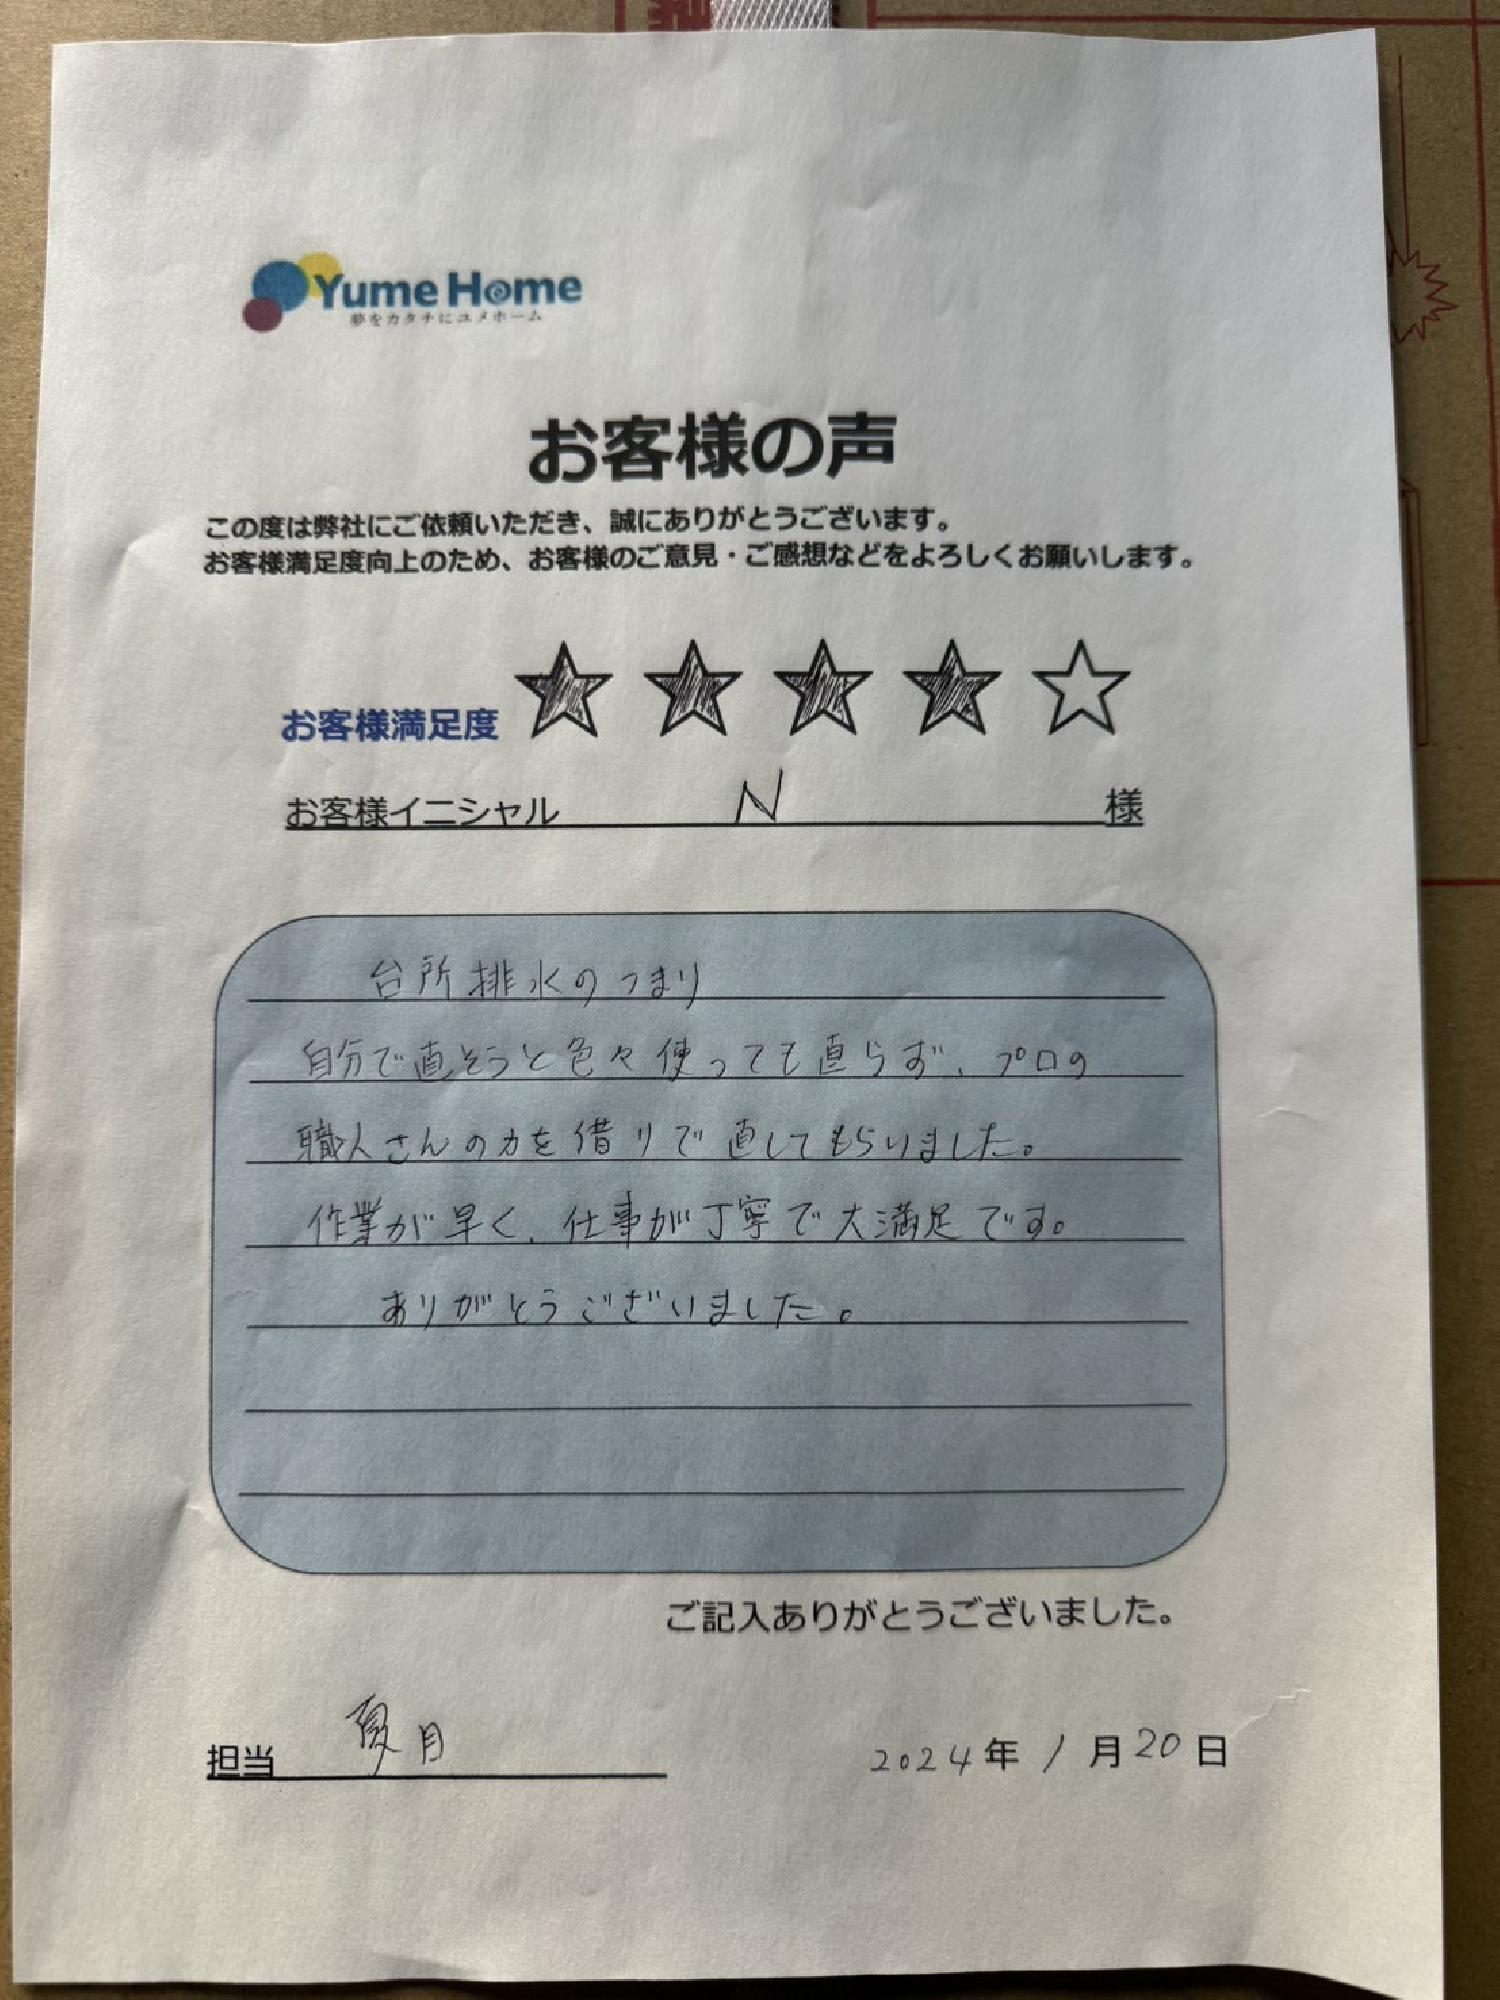 Yume Home
夢をカタチにユメホーム
お客様の声
この度は弊社にご依頼いただき、誠にありがとうございます。
お客様満足度向上のため、お客様のご意見・ご感想などをよろしくお願いします。
お客様満足度 ★★★★☆
お客様イニシャル N 様
台所排水のつまり
自分で直そうと色々使っても直らず、プロの
職人さんの力を借りで直してもらいました。
作業が早く、仕事が丁寧で大満足です。
ありがとうございました。
ご記入ありがとうございました。
担当 夏月
2024年 1月20日